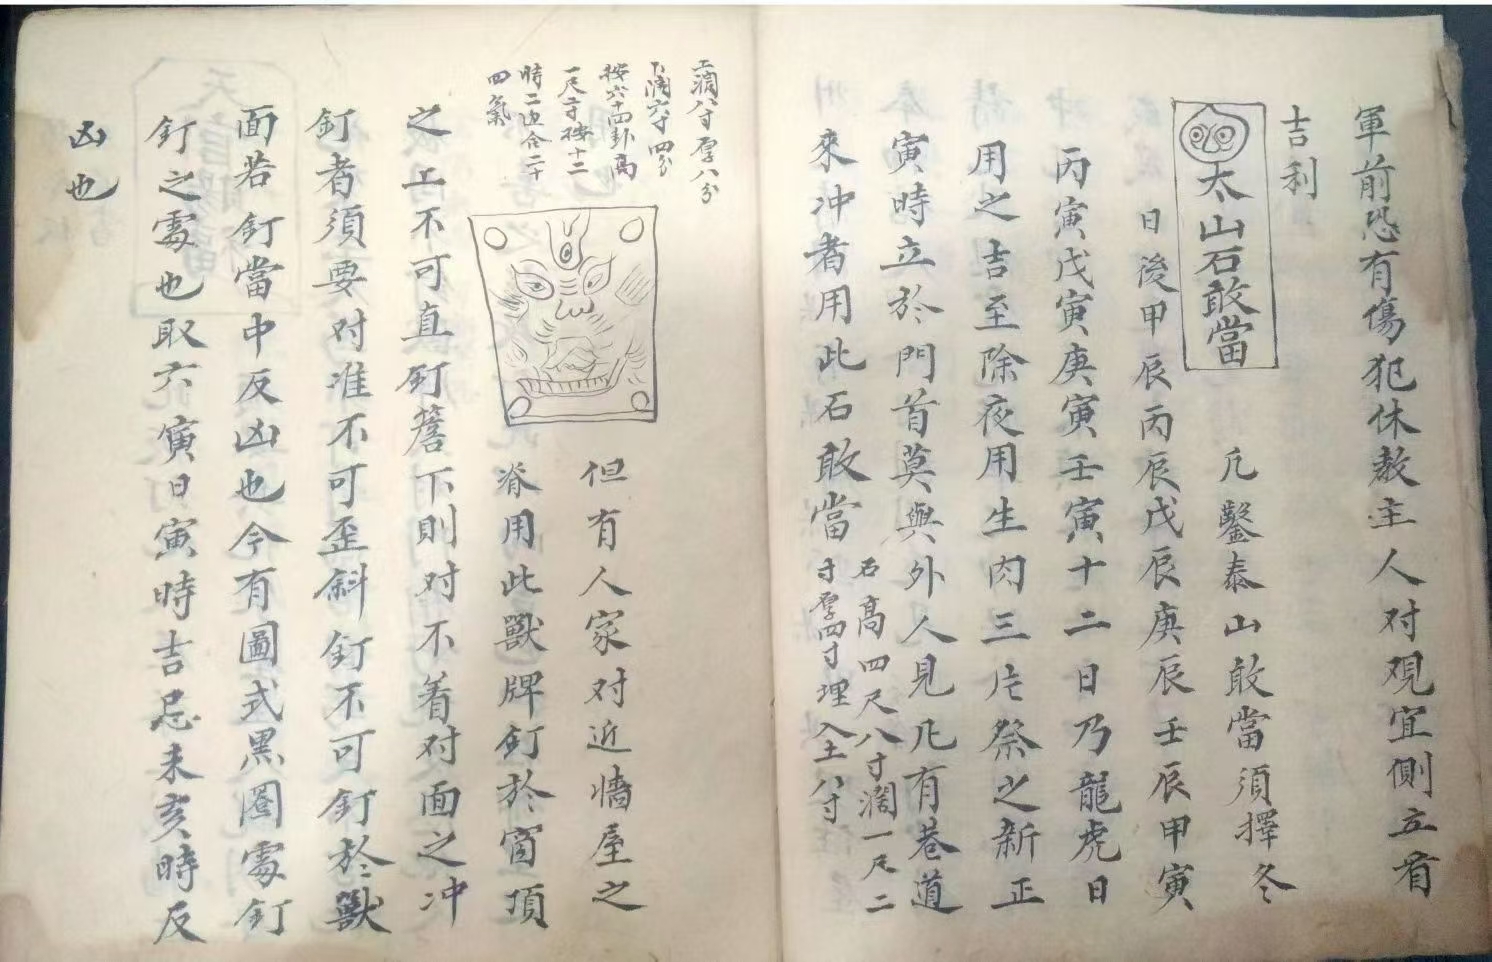 軍前恐有傷犯休教主人对覌宜側立看
吉利
太山石敢當
凡鑿泰山敢當須擇冬
日後甲辰丙辰戊辰庚辰壬辰甲寅
丙寅戊寅庚寅壬寅十二日乃龍虎日
用之吉至除夜用生肉三片祭之新正
寅時立於門首莫與外人見凡有巷道
來冲者用此石敢當
石高四尺八寸濶一尺二
寸厚四寸埋入土八寸
上濶八寸厚八分
下濶六寸四分
按六十四卦高
一尺二寸按十二
時二边合二十
四氣
但有人家对近墻屋之
脊用此獸牌釘於窗頂
之上不可直釘簷下則对不着对面之冲
釘者須要对准不可歪斜釘不可釘於獸
面若釘當中反凶也今有圖式黑圈處釘
釘之處也取六寅日寅時吉忌未亥時反
凶也